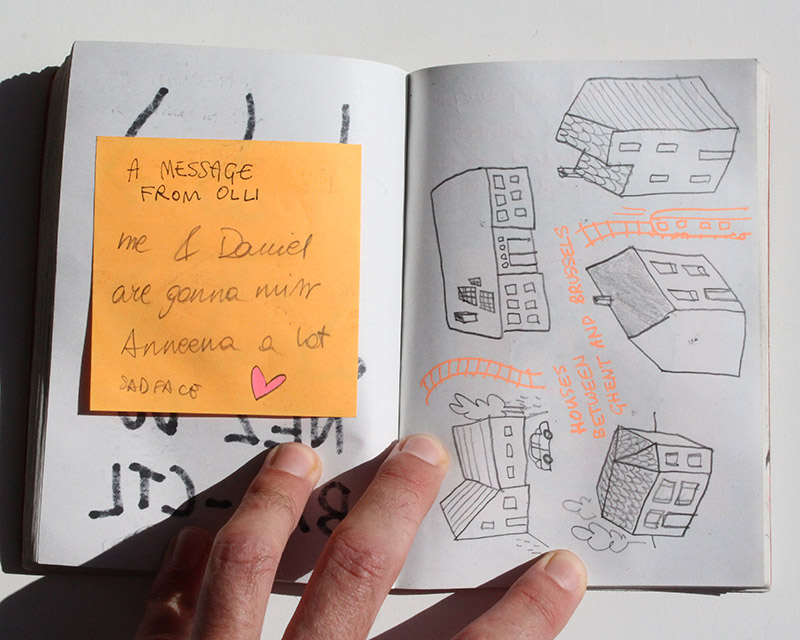 A MESSAGE
FROM OLLI
me & Daniel
are gonna miss
Anneena a lot
SADFACE
HOUSES
BETWEEN
GHENT AND BRUSSELS